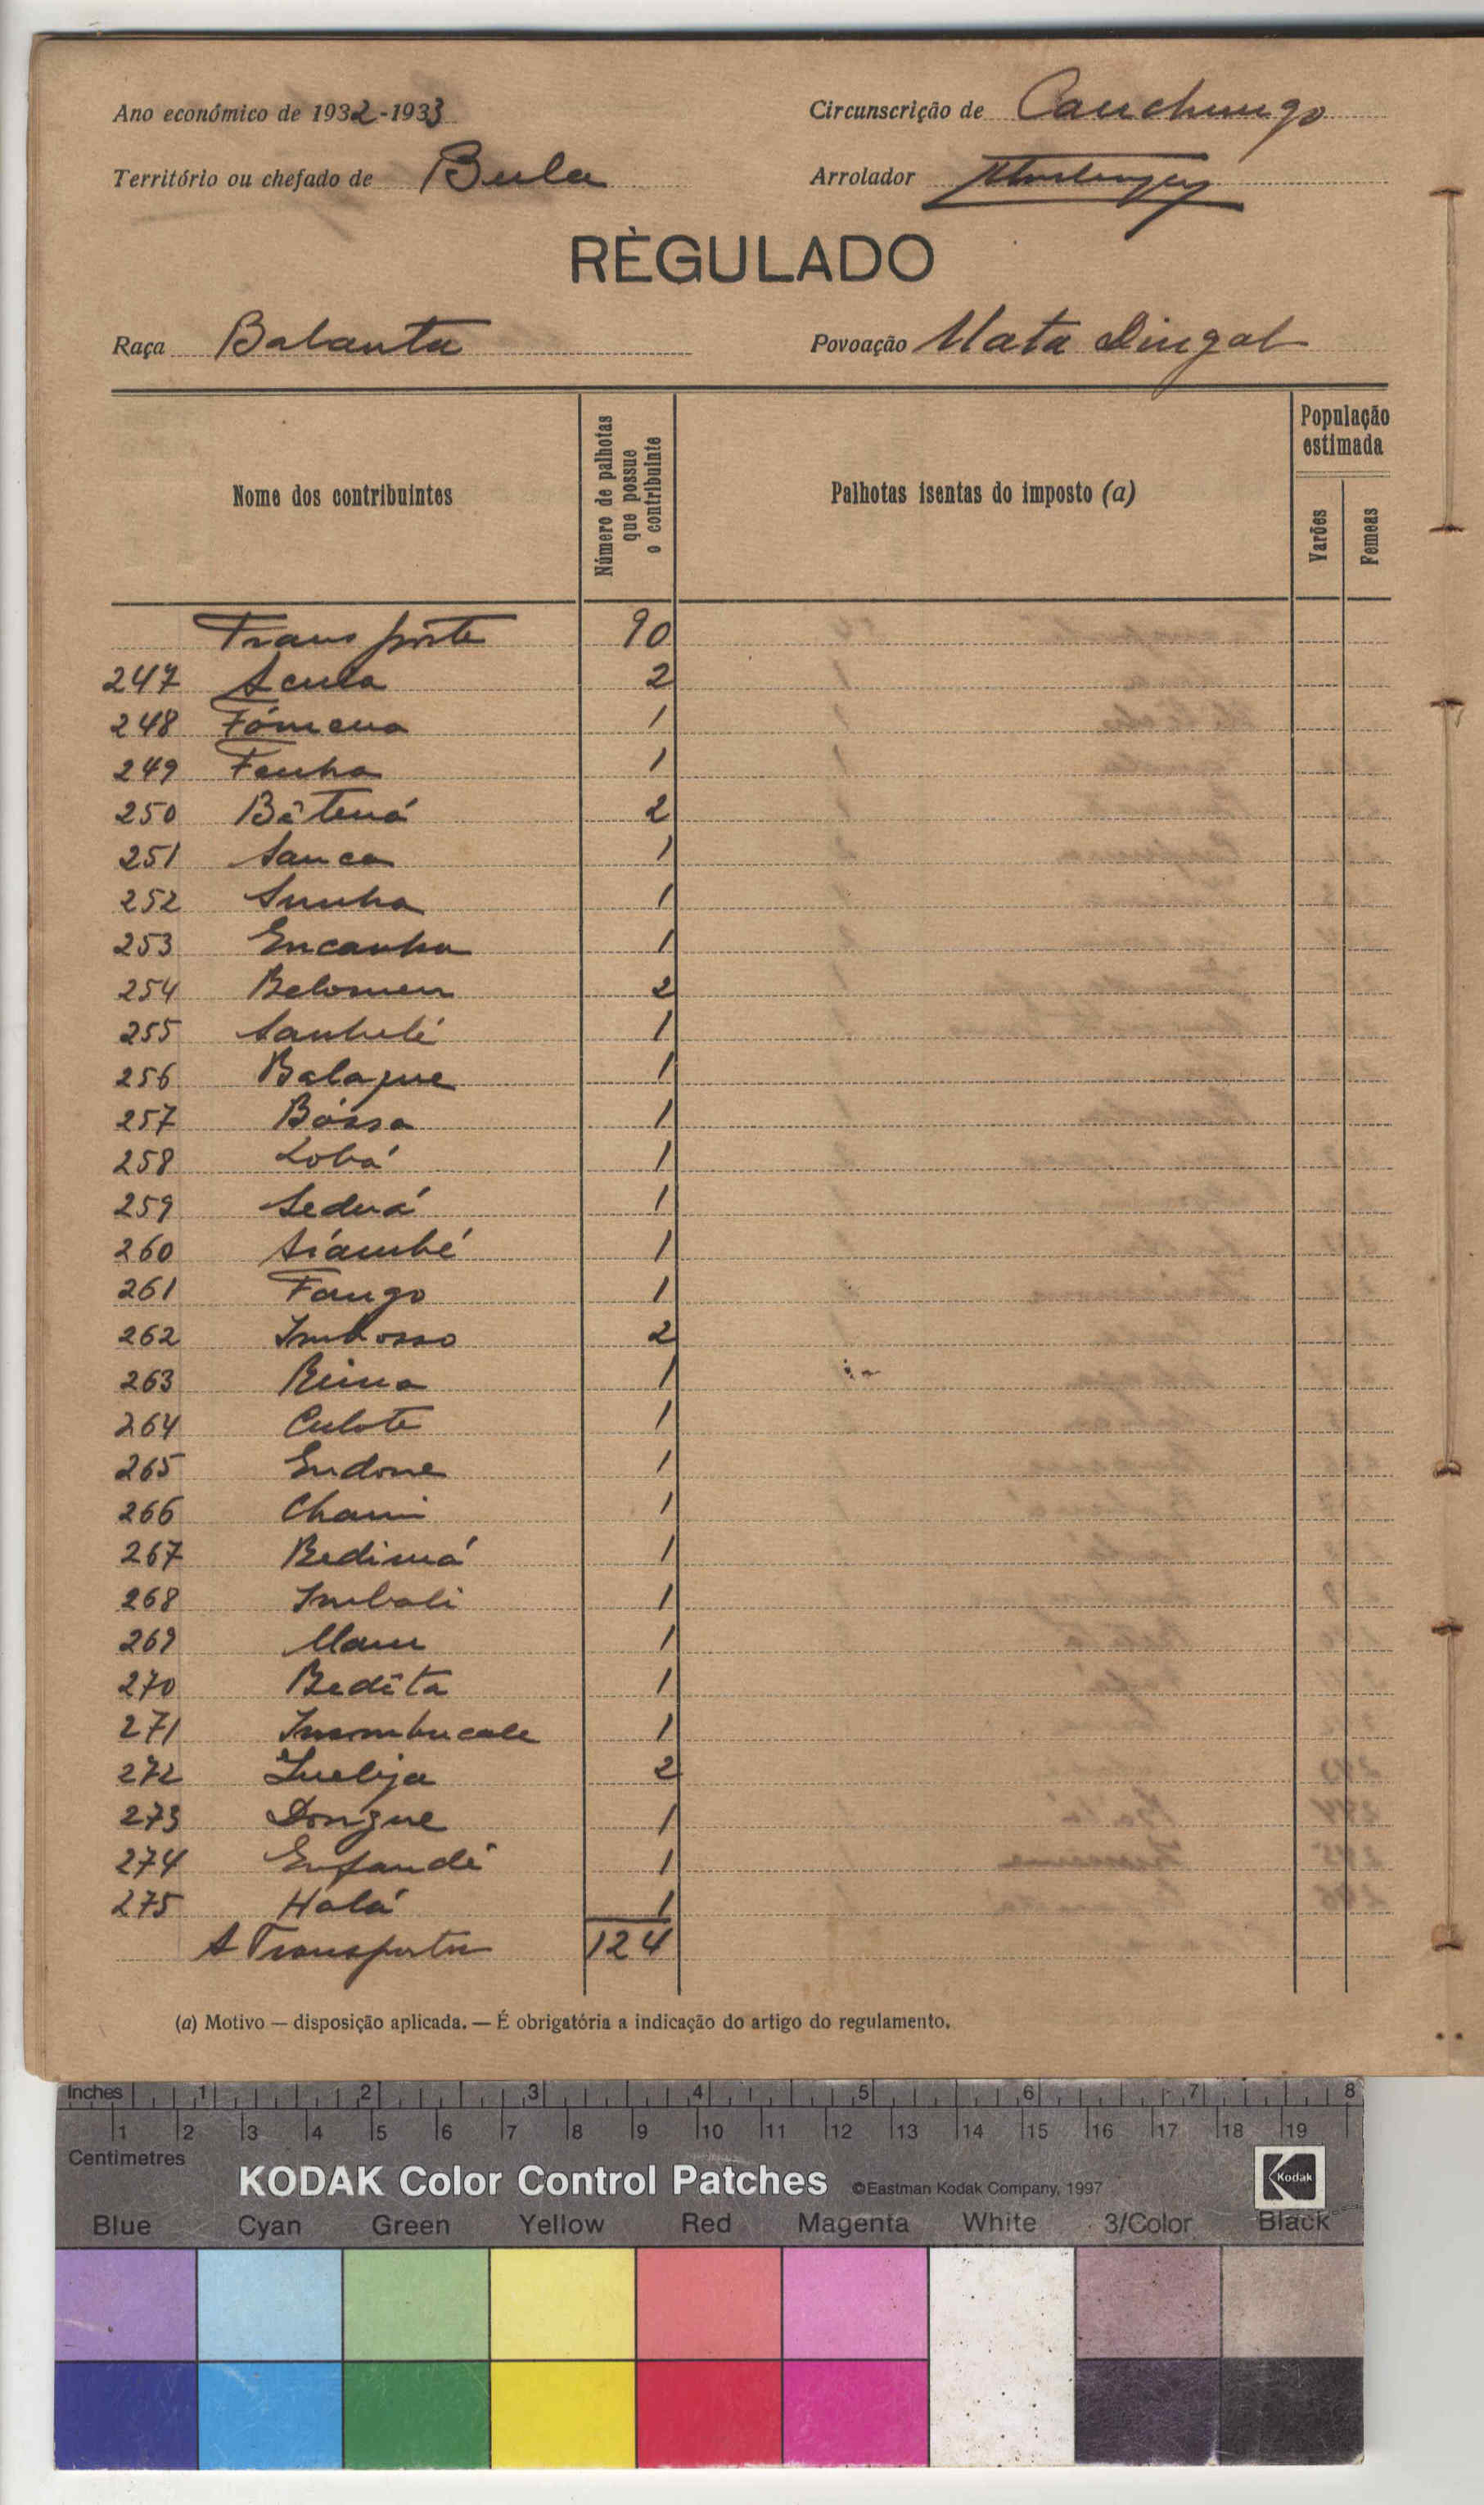 Ano económico de 1932-1933 Circunscrição de Cauchungo
Território ou chefado de Bula Arrolador
RÈGULADO
Raça Balanta Povoação Mata Dingal
Nome dos contribuintes Número de palhotas que possue o contribuinte Palhotas isentas do imposto (a) População estimada Varões Femeas
Transporte 90
247 Acula 2
248 Fómena 1
249 Fenha 1
250 Bâtená 2
251 Sanca 1
252 Sunha 1
253 Encanha 1
254 Belomen 2
255 1
256 Balaque 1
257 Bóssa 1
258 Lobá 1
259 Seduá 1
260 Siambé 1
261 Fango 1
262 Imbosso 2
263 1
264 Culote 1
265 Endone 1
266 Chami 1
267 Bedimá 1
268 Imbali 1
269 1
270 Bedêta 1
271 1
272 2
273 Dongue 1
274 Enfandé 1
275 Halá 1
A Transportar 124
(a) Motivo — disposição aplicada. — É obrigatória a indicação do artigo do regulamento.
Inches 1 2 3 4 5 6 7 8
1 2 3 4 5 6 7 8 9 10 11 12 13 14 15 16 17 18 19
Centimetres
KODAK Color Control Patches ©Eastman Kodak Company, 1997 Kodak
Blue Cyan Green Yellow Red Magenta White 3/Color Black